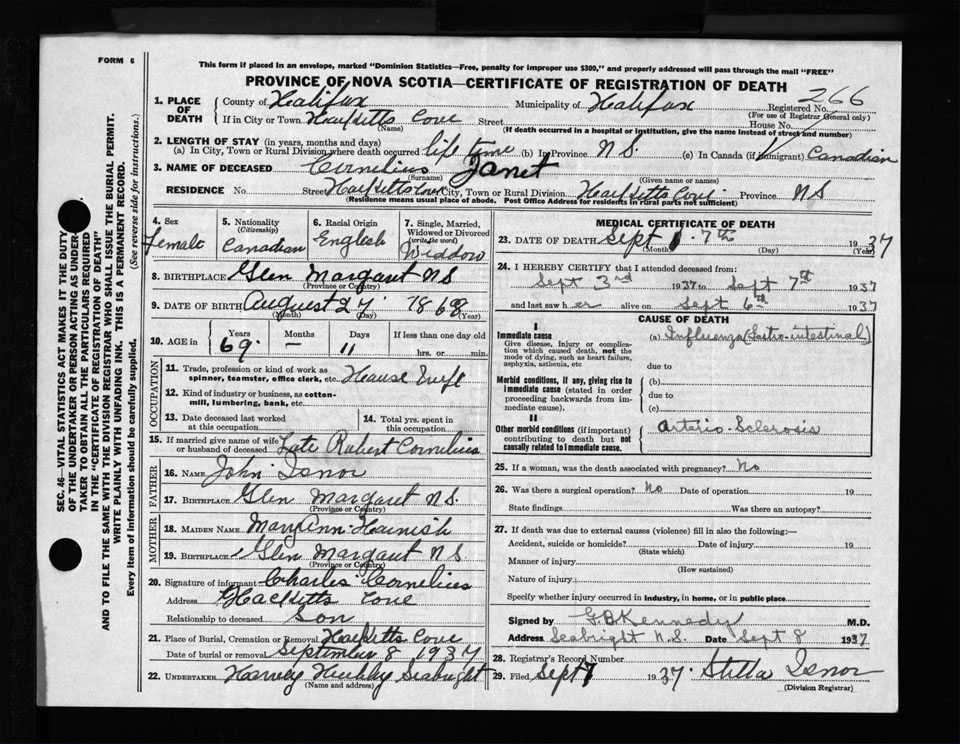 FORM 6
This form if placed in an envelope, marked "Dominion Statistics—Free, penalty for improper use $300," and properly addressed will pass through the mail "FREE"
PROVINCE OF NOVA SCOTIA—CERTIFICATE OF REGISTRATION OF DEATH
1. PLACE OF DEATH County of Halifax Municipality of Halifax Registered No. 266
(For use of Registrar General only)
If in City or Town Hacketts Cove Street House No.
(Name) (If death occurred in a hospital or institution, give the name instead of street and number)
2. LENGTH OF STAY (in years, months and days)
(a) In City, Town or Rural Division where death occurred life time (b) In Province N.S. (c) In Canada (if immigrant) Canadian
3. NAME OF DECEASED Cornelius Janet
(Surname) (Given name or names)
RESIDENCE No. Street Hacketts Cove City, Town or Rural Division Hacketts Cove Province N S
(Residence means usual place of abode. Post Office Address for residents in rural parts not sufficient)
4. Sex Female
5. Nationality (Citizenship) Canadian
6. Racial Origin English
7. Single, Married, Widowed or Divorced (write the word) Widdow
8. BIRTHPLACE Glen Margaret N S
(Province or Country)
9. DATE OF BIRTH August 27 1868
(Month) (Day) (Year)
10. AGE in Years 69 Months — Days 11 If less than one day old hrs. or min.
OCCUPATION
11. Trade, profession or kind of work as spinner, teamster, office clerk, etc. House Wife
12. Kind of industry or business, as cotton-mill, lumbering, bank, etc.
13. Date deceased last worked at this occupation
14. Total yrs. spent in this occupation.
15. If married give name of wife or husband of deceased Late Robert Cornelius
FATHER
16. NAME John Isnor
17. BIRTHPLACE Glen Margaret N S.
(Province or Country)
MOTHER
18. MAIDEN NAME Mary Ann Harnish
19. BIRTHPLACE Glen Margaret N S
(Province or Country)
20. Signature of informant Charles Cornelius
Address Hacketts Cove
Relationship to deceased Son
21. Place of Burial, Cremation or Removal Hacketts Cove
Date of burial or removal September 8 1937
22. UNDERTAKER Harvey Hubley Seabright
(Name and address)
MEDICAL CERTIFICATE OF DEATH
23. DATE OF DEATH Sept 7th 1937
(Month) (Day) (Year)
24. I HEREBY CERTIFY that I attended deceased from:
Sept 3rd 1937 to Sept 7th 1937
and last saw her alive on Sept 6th 1937
CAUSE OF DEATH
I
Immediate cause (a) Influenza (Gastro-intestinal)
Give disease, injury or complication which caused death, not the mode of dying, such as heart failure, asphyxia, asthenia, etc.
due to
Morbid conditions, if any, giving rise to immediate cause (stated in order proceeding backwards from immediate cause).
(b)
due to
(c)
II
Other morbid conditions (if important) contributing to death but not causally related to immediate cause.
Arterio-Sclerosis
25. If a woman, was the death associated with pregnancy? No
26. Was there a surgical operation? No Date of operation 19
State findings Was there an autopsy?
27. If death was due to external causes (violence) fill in also the following:—
Accident, suicide or homicide? Date of injury 19
(State which)
Manner of injury
(How sustained)
Nature of injury
Specify whether injury occurred in industry, in home, or in public place
Signed by G.B Kennedy M.D.
Address Seabright N.S. Date Sept 8 1937
28. Registrar's Record Number
29. Filed Sept 1937 Stella Isnor
(Division Registrar)
SEC. 46—VITAL STATISTICS ACT MAKES IT THE DUTY
OF THE UNDERTAKER OR PERSON ACTING AS UNDER-
TAKER TO OBTAIN ALL THE PARTICULARS REQUIRED
IN THE "CERTIFICATE OF REGISTRATION OF DEATH"
AND TO FILE THE SAME WITH THE DIVISION REGISTRAR WHO SHALL ISSUE THE BURIAL PERMIT.
WRITE PLAINLY WITH UNFADING INK. THIS IS A PERMANENT RECORD.
Every item of information should be carefully supplied. (See reverse side for instructions.)